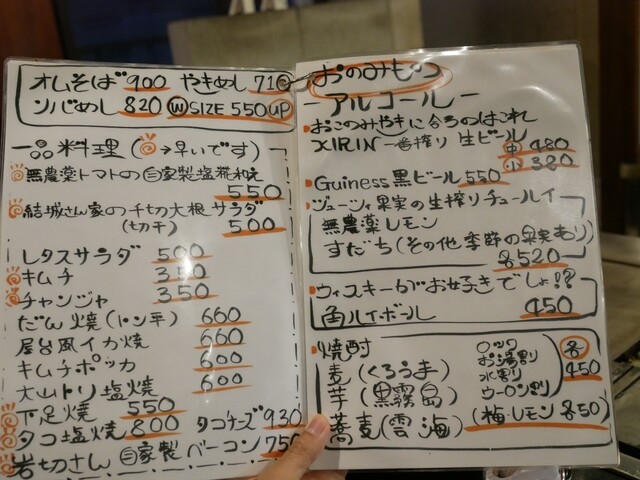 オムそば 900 やきめし 710
ソバめし 820 Ⓦ SIZE 550 UP
一品料理 (→早いです)
無農薬トマトの自家製塩糀和え
550
結城さん家の千切大根サラダ
(切干) 500
レタスサラダ 500
キムチ 350
チャンジャ 350
とん焼 (トン平) 660
屋台風イカ焼 660
キムチポッカ 600
大山トリ塩焼 600
下足焼 550
タコ塩焼 800 タコチーズ 930
岩切さん自家製ベーコン 750
おのみもの
－アルコール－
おこのみやきに合うのはこれ
KIRIN 一番搾り 生ビール
中 480
小 320
Guiness黒ビール 550
ジューシィ果実の生搾りチューハイ
無農薬レモン
すだち(その他季節の果実あり)
各520
ウィスキーがお好きでしょ!?
角ハイボール 450
焼酎
麦 (くろうま)
芋 (黒霧島)
蕎麦 (雲海)
ロック
お湯割
水割
ウーロン割
各
450
(梅・レモン 各50)